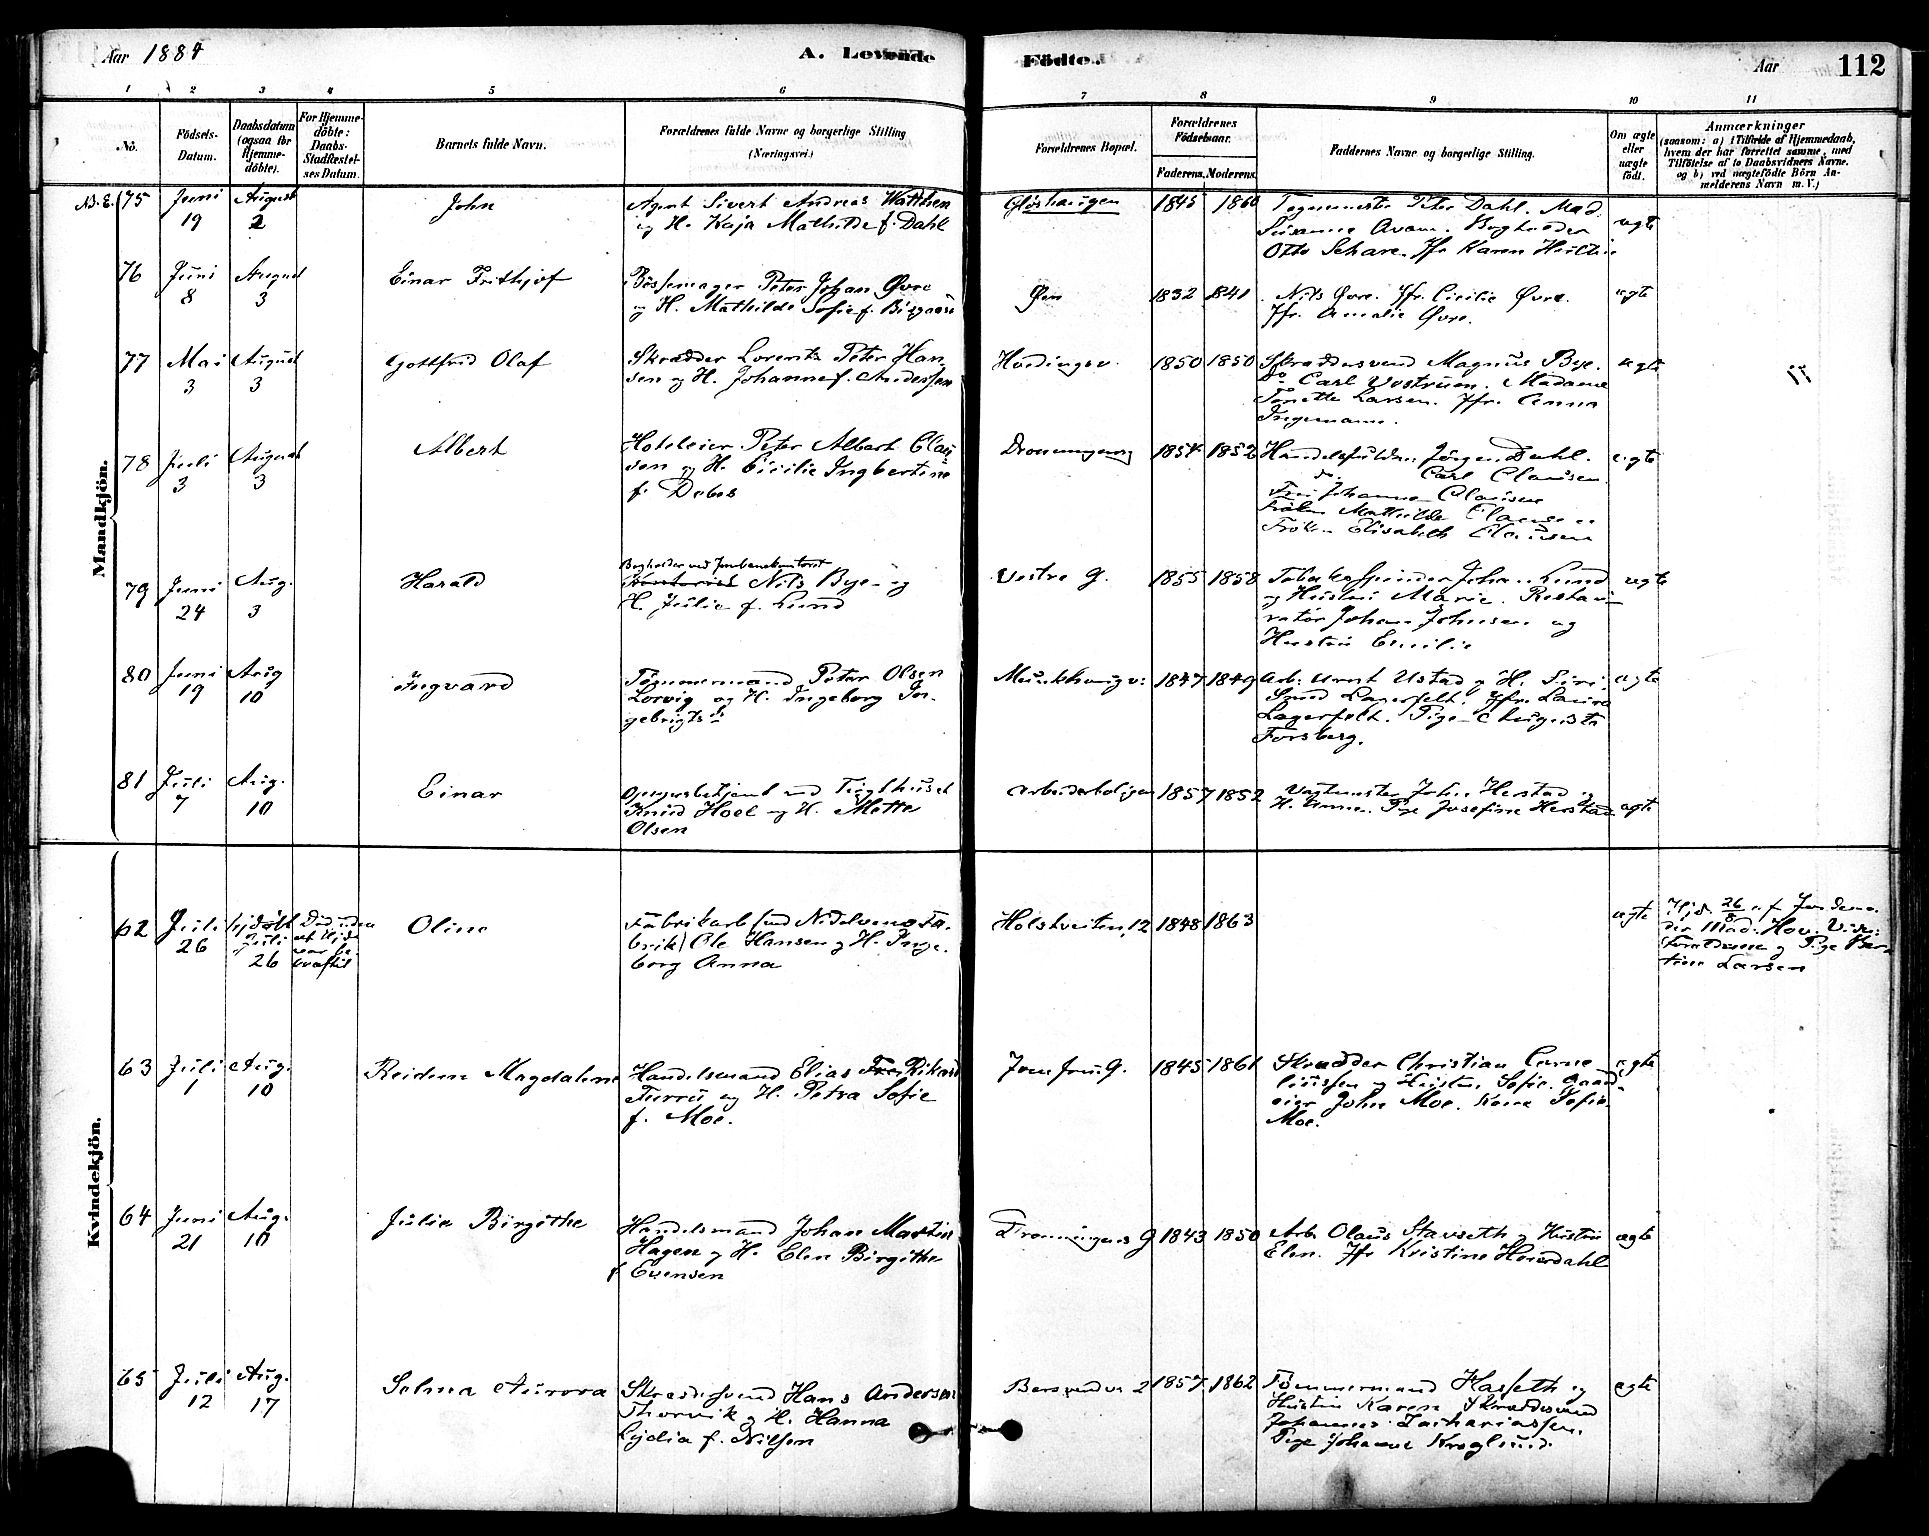 Aar 1884
A. Levende
Födte.
Aar
112
1 2 3 4 5 6 7 8 9 10 11
No.
Födsels-
Datum.
Daabsdatum
(ogsaa for
Hjemme-
döbte).
For Hjemme-
döbte:
Daabs-
Stadfæstel-
ses Datum.
Barnets fulde Navn.
Forældrenes fulde Navne og borgerlige Stilling
(Næringsvei.)
Forældrenes Bopæl.
Forældrenes
Födselsaar.
Faderens. Moderens.
Faddernes Navne og borgerlige Stilling.
Om ægte
eller
uægte
födt.
Anmærkninger
(saasom: a) i Tilfælde af Hjemmedaab,
hvem der har forrettet samme, med
Tilföielse af to Daabsvidners Navne,
og b) ved uægtefödte Börn An-
melderens Navn m. V.)
Mandkjön.
75
Juni
19
August
2
John
Agent Sivert Andreas Watthen
og H. Kaja Mathilde f. Dahl
Gløshaugen
1845 1860
Peter Dahl. Mad.
Otto Schare. Jfr Karen
ægte
76
Juni
8
August
3
Einar Frithjof
Bössemager Peter Johan Øvre
og H. Mathilde Sofie f.
Øen
1832 1841
Nils Øvre. Jfr. Cicilie Øvre.
Jfr. Amalie Øvre.
ægte
77
Mai
3
August
3
Gottfred Olaf
Skrædder Lorents Peter Han
sen og H. Johanne f. Andersen
1850 1850
Skræddersvend Magnus Bye.
Do Carl Vestrum. Madame
Tonette Larsen. Jfr. Anna
Ingemann.
ægte
78
Juli
3
August
3
Albert
Hoteleier Peter Albert Clau
sen og H. Cicilie Ingbertine
f. Debes
1854 1852
Jörgen Dahl.
do. Carl Clausen
Fru Johanne Clausen
Frøken Mathilde Clausen
Frøken Elisabeth Clausen
ægte
79
Juni
24
Aug.
3
Harald
Bogholder ved Jernbanekontoret
Nils Bye og
H. Julie f. Lund
Vestre G.
1855 1858
Tobakspinder Johan Lund
og Hustru Marie. Restau
ratør Johan Johnsen og
Hustru Emilie
ægte
80
Juni
19
Aug
10
Ingvard
Tømmermand Peter Olsen
Lorvig og H. Ingeborg In-
gebrigtsd
Munkhaugv.
1847 1849
Arb. Arnt Ustad og H. Siri.
Lagerfelt. Jfr. Laura
Lagerfelt. Pige Augusta
Forsberg.
ægte
81
Juli
7
Aug.
10
Einar
Opsynsbetjent ved Tugthuset
Knud Hoel og H. Mette
Olsen
Arbeiderboligen
1857 1852
Vagtmester John Herstad og
H. Anne. Pige Josefine Herstad
ægte
Kvindekjön.
62
Juli
26
hjdøbt
Juli
26
Død uden
at Hjd.
var be-
kræftet
Oline
Fabrikarb (ved Nidelvens Fa-
brik) Ole Hansen og H. Inge-
borg Anna
Holstveiten 12
1848 1863
ægte
Hjd. 26 af Jordemo-
der Mad. Hov. Vid.:
Forældrene og Pige Ber-
tine Larsen
63
Juli
1
Aug.
10
Reidun Magdalene
Handelsmand Elias Rikard
Furru og H. Petra Sofie
f. Moe.
Jomfru G.
1845 1861
Skrædder Christian Corne-
liussen og Hustru Sofie. Gaard-
eier John Moe. Kone Sofie
Moe.
ægte
64
Juni
21
Aug.
10
Julie Birgithe
Handelsmand Johan Martin
Hagen og H. Elen Birgithe
f. Evensen
Dronningens G
1843 1850
Arb. Olaus Stavseth og Hustru
Elen. Jfr Kristine
ægte
65
Juli
12
Aug.
17
Selma Aurora
Skræddersvend Hans Andersen
Thorvik og H. Hanna
Lydia f. Nilsen
1857 1862
Tømmermand Hasseth og
Hustru Karen. Skræddersvend
Johannes Zachariassen.
Pige Johanne Kroglund.
ægte